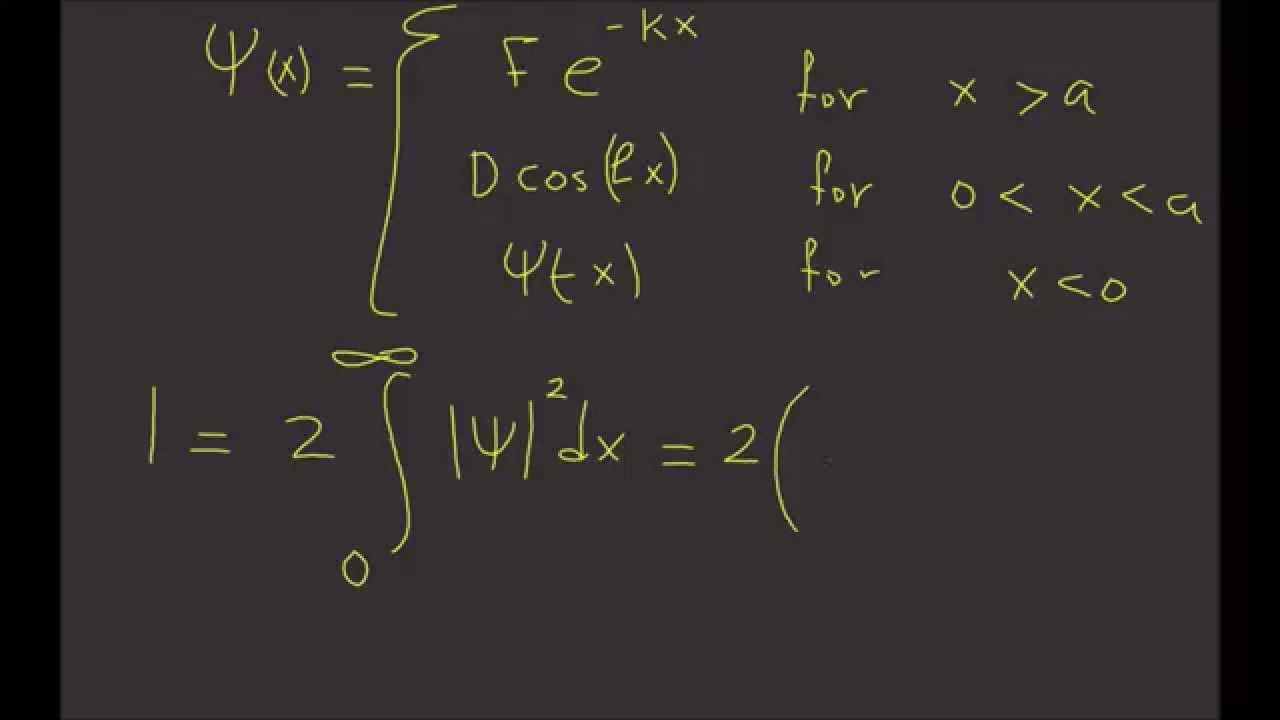 ψ(x) = { F e^{-kx} for x > a
D cos(ℓx) for 0 < x < a
ψ(-x) for x < 0
1 = 2 ∫_0^∞ |ψ|^2 dx = 2 (